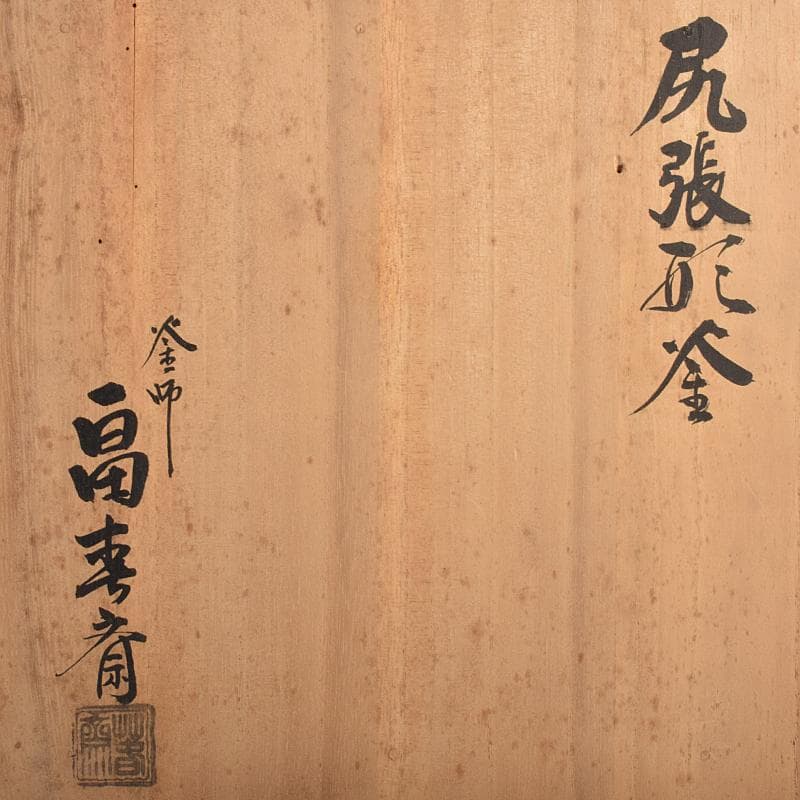 尻張形釜
釜師
畠春斎
春斎